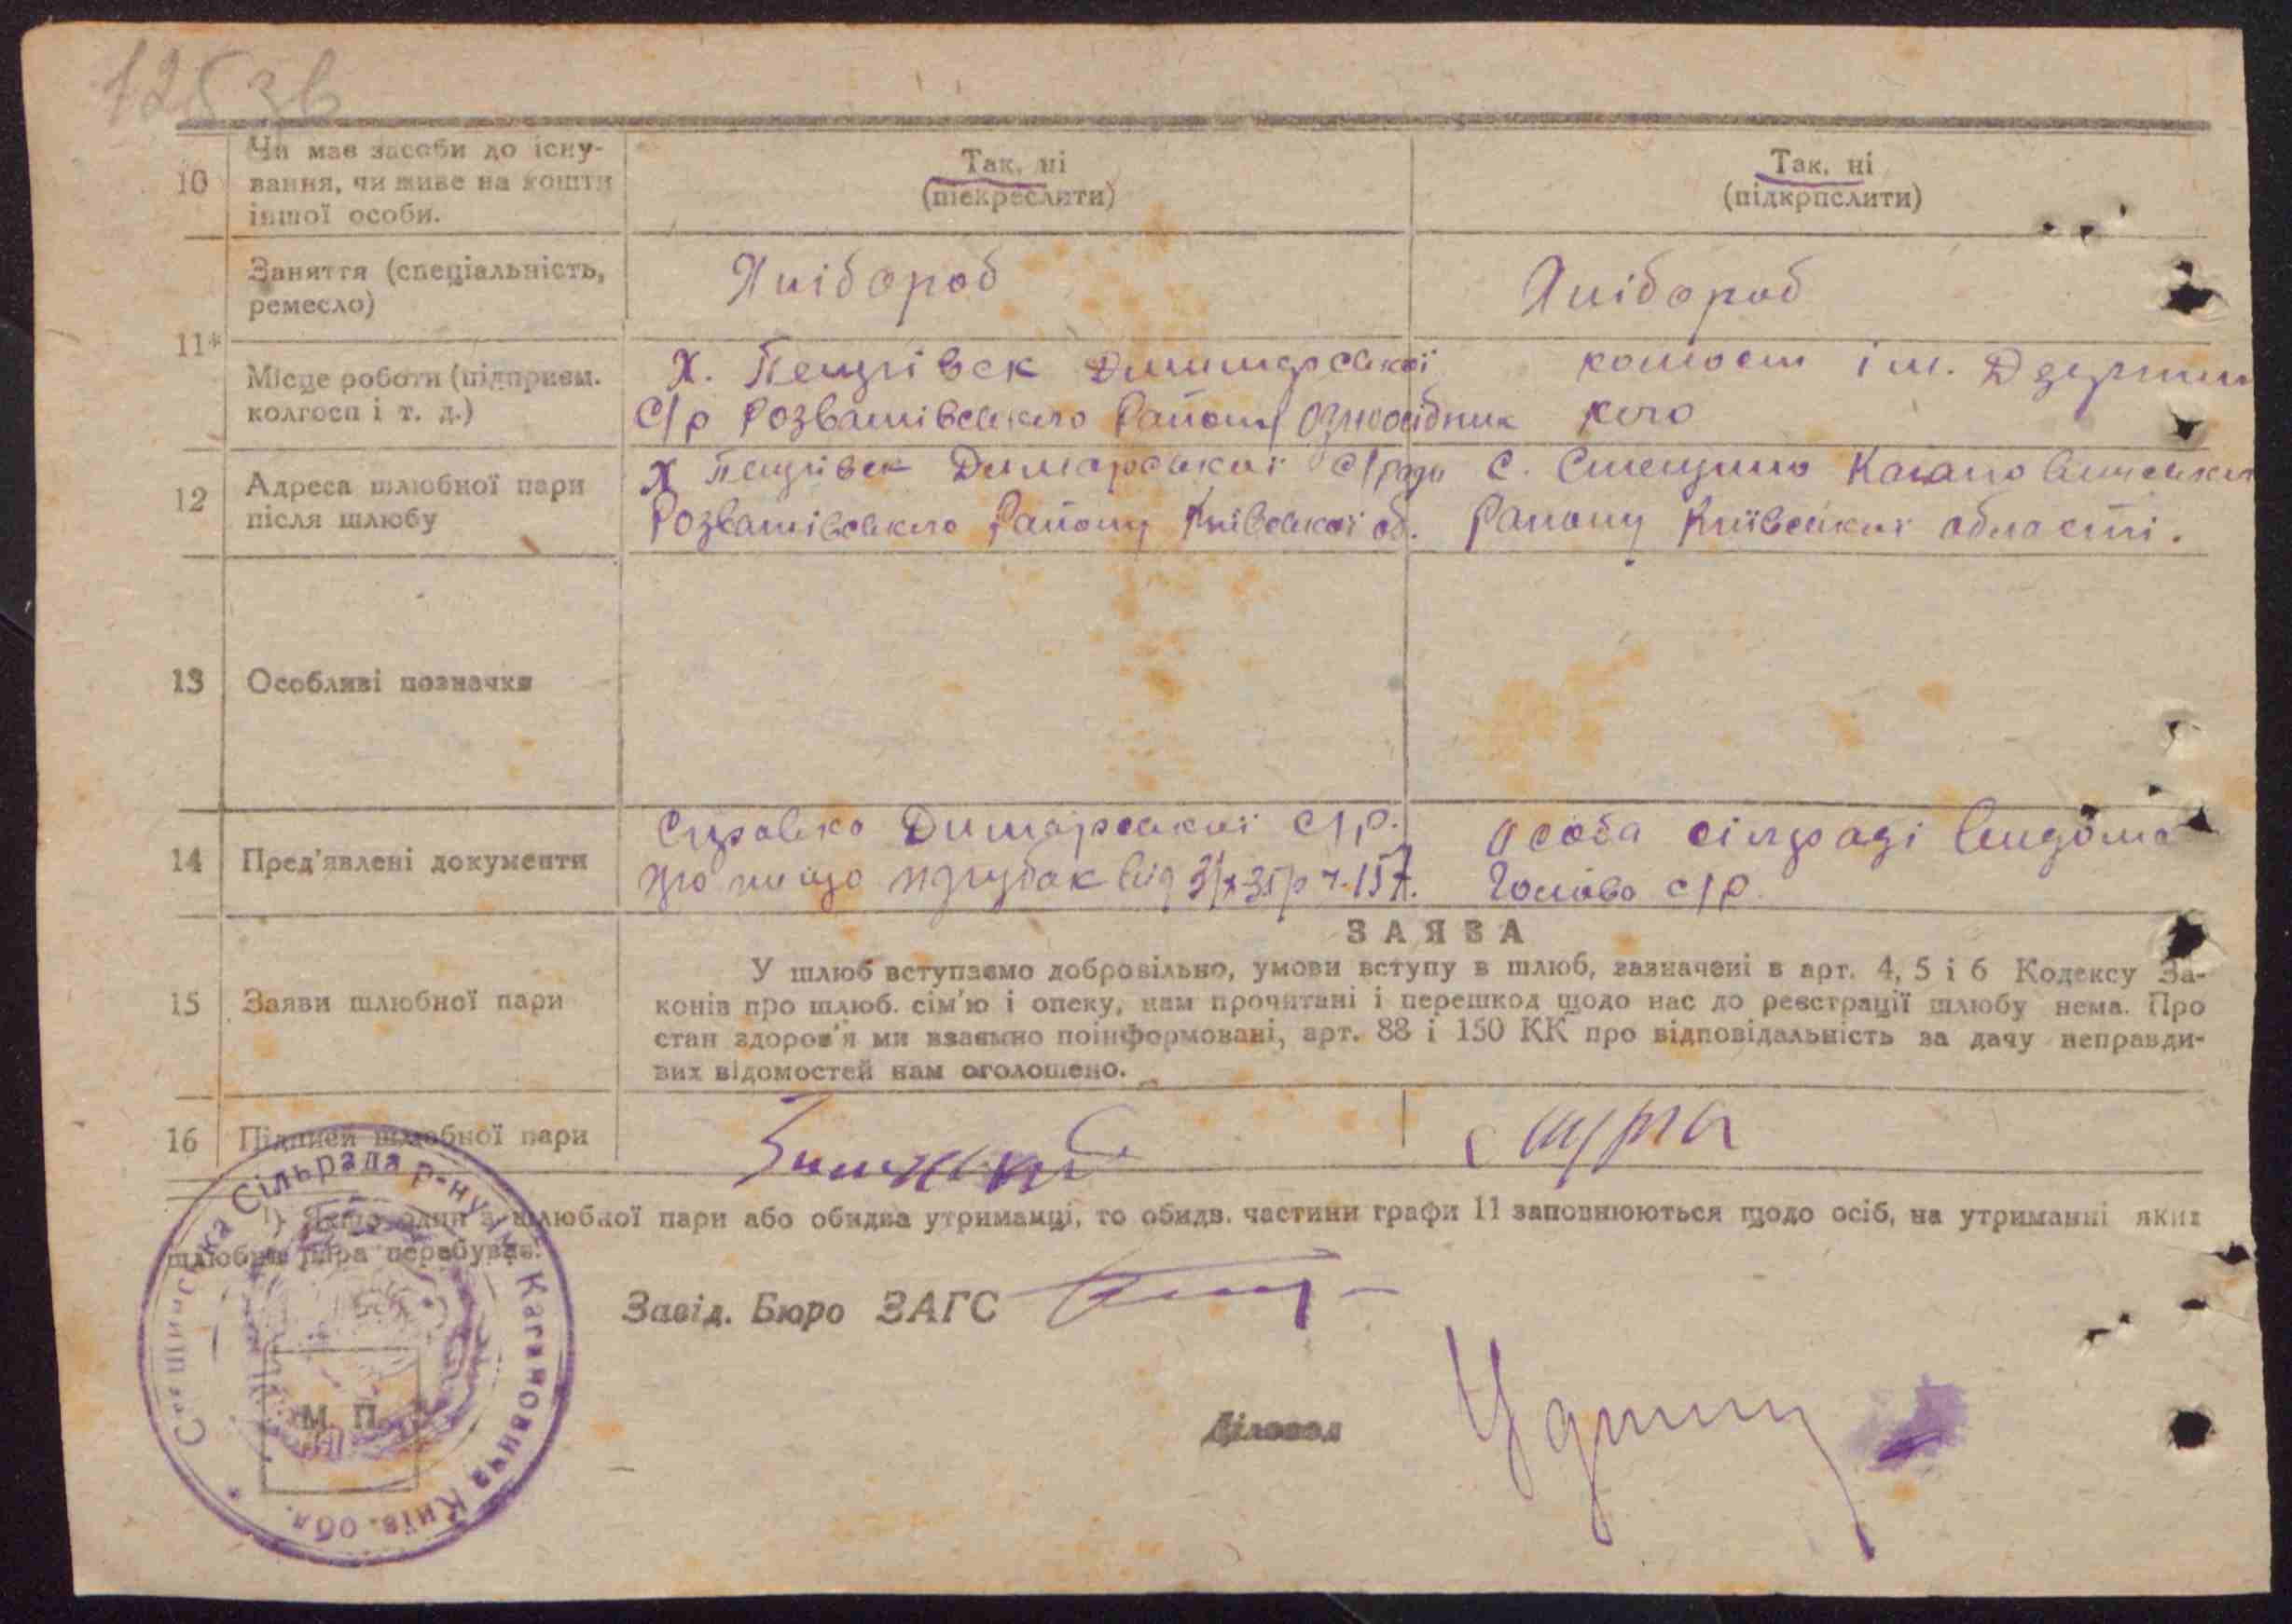 125 зв
10
Чи має засоби до існу-
вання, чи живе на кошти
іншої особи.
Так, ні
(підкреслити)
Так, ні
(підкрпслити)
11*
Заняття (спеціальність,
ремесло)
Хлібороб
Хлібороб
Місце роботи (підприєм.
колгосп і т. д.)
Х. Димарської
С/р Розважівського Району Одноосібник
колгосп ім. Дзержин
кого
12
Адреса шлюбної пари
після шлюбу
Х Димарської с/ради
Розважівського Району Київської об.
С. Стещино Кагановичського
Району Київської області.
13
Особливі позначки
14
Пред'явлені документи
Справка Димарської с/р.
про те що від
Особа сілраді видома
Голова с/р.
15
Заяви шлюбної пари
ЗАЯВА
У шлюб вступаємо добровільно, умови вступу в шлюб, зазначені в арт. 4, 5 і 6 Кодексу За-
конів про шлюб. сім'ю і опеку, нам прочитані і перешкод щодо нас до реєстрації шлюбу нема. Про
стан здоров'я ми взаємно поінформовані, арт. 88 і 150 КК про відповідальність за дачу неправди-
вих відомостей нам оголошено.
16
Підписи шлюбної пари
¹) Якщо один з шлюбної пари або обидва утриманці, то обидв. частини графи 11 заповнюються щодо осіб, на утриманні яких
шлюбна пара перебуває.
Завід. Бюро ЗАГС
Діловод
М. П.
Сільрада р-ну ім. Кагановича Київ. обл.